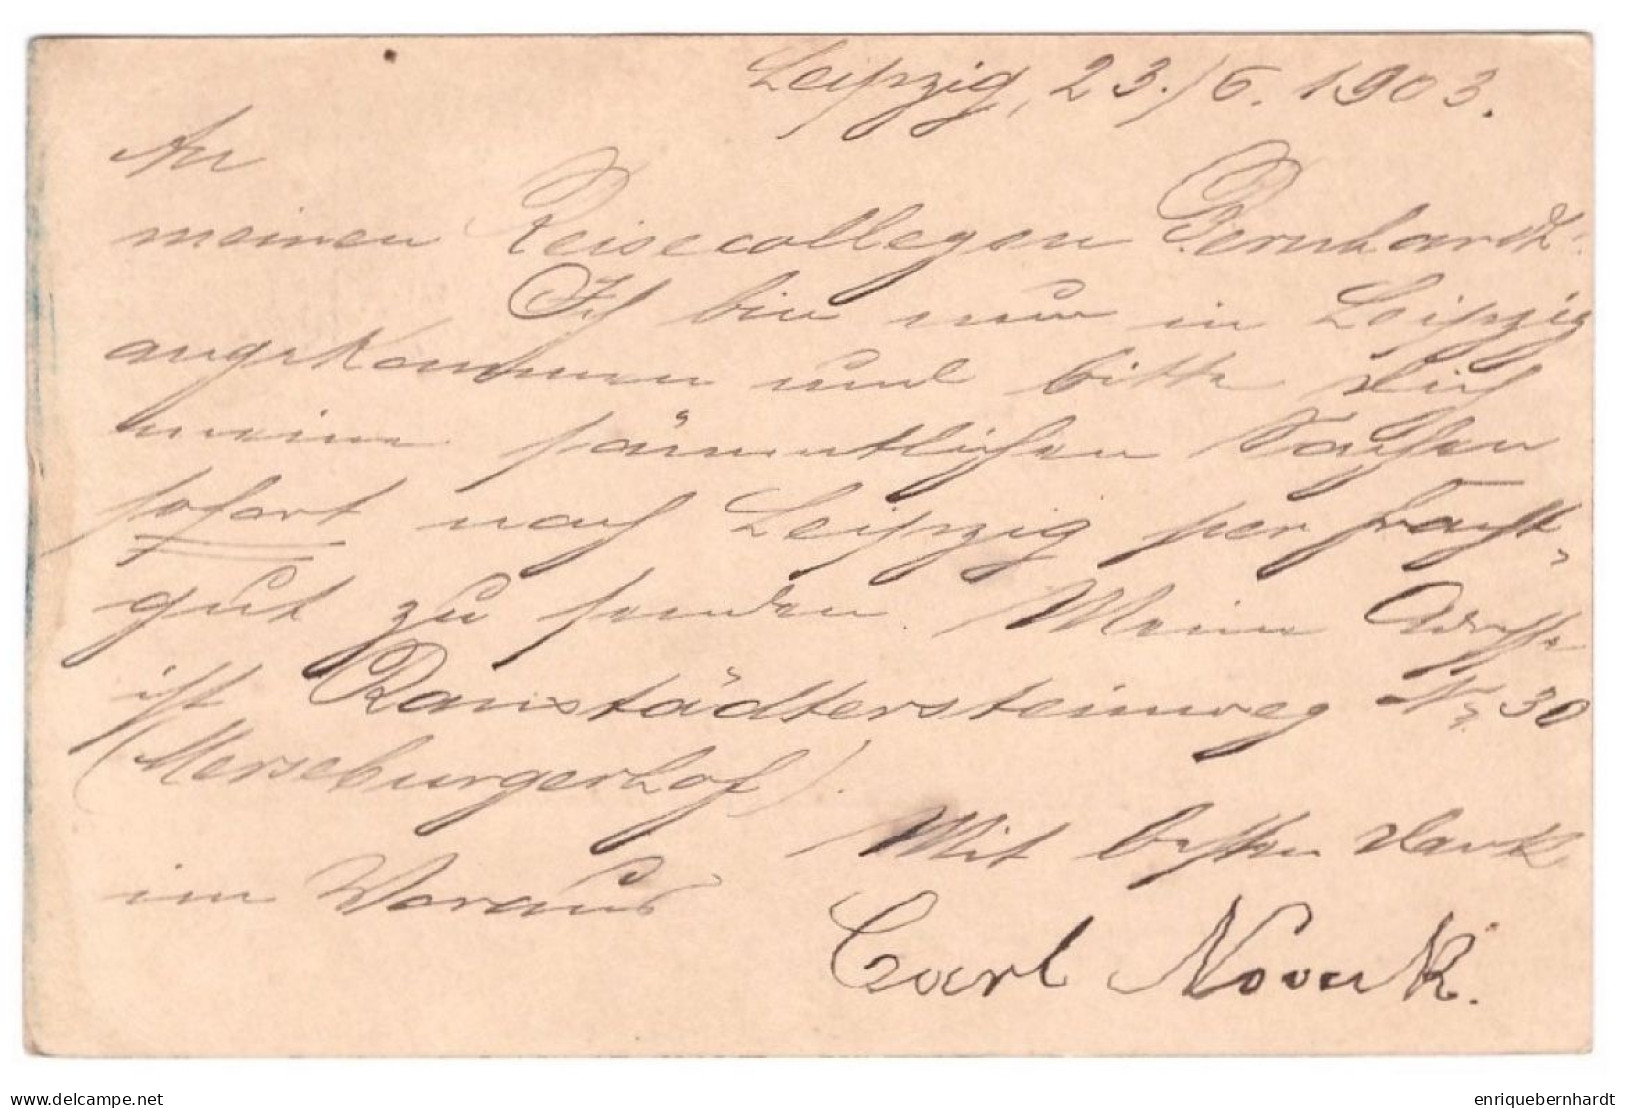 Leipzig, 23./6. 1903.
An
meinen Reisecollegen Bernhardt.
Ich bin nun in Leipzig
angekommen und bitte dich
meine sämmtlichen Sachen
sofort nach Leipzig per Fracht-
gut zu senden. Meine Adresse
ist Ranstädtersteinweg Nr 30
(Merseburgerhof).
Mit besten Dank
im Voraus
Carl Novak.
www.delcampe.net
enriquebernhardt